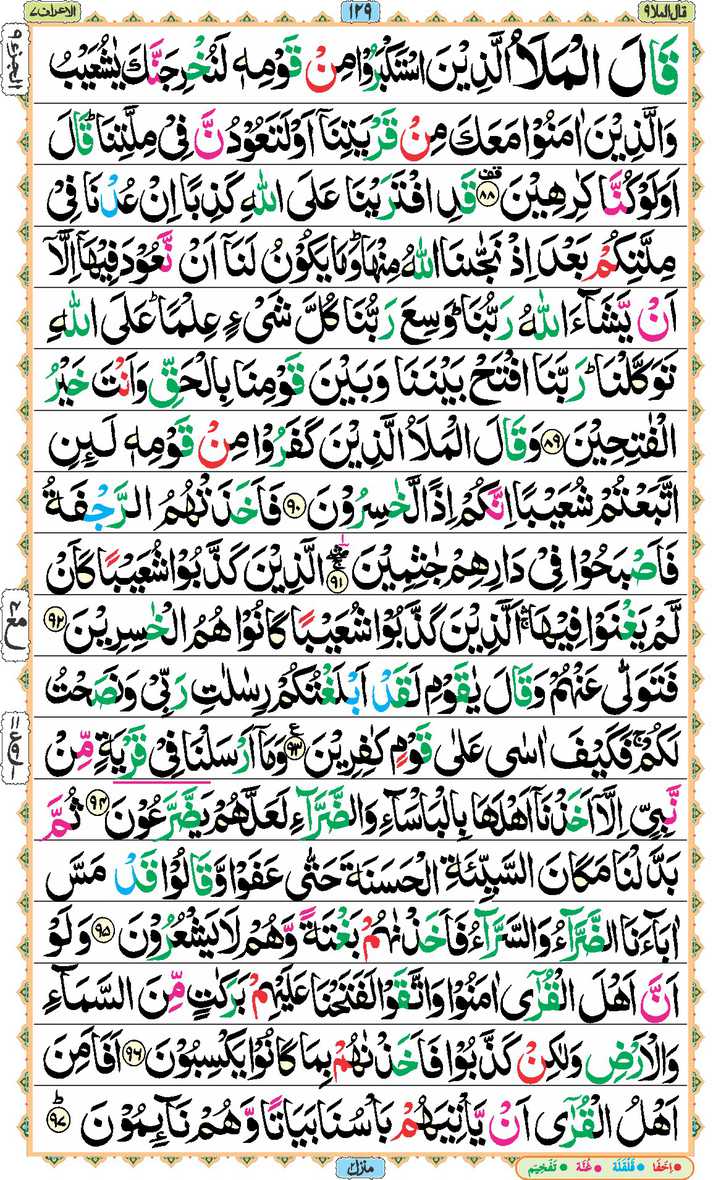 قال الملا ٩
١٢٩
الاعراف ٧
قَالَ الۡمَلَاُ الَّذِیۡنَ اسۡتَکۡبَرُوۡا مِنۡ قَوۡمِهٖ لَنُخۡرِجَنَّکَ یٰشُعَیۡبُ
وَالَّذِیۡنَ اٰمَنُوۡا مَعَکَ مِنۡ قَرۡیَتِنَاۤ اَوۡ لَتَعُوۡدُنَّ فِیۡ مِلَّتِنَا ؕ قَالَ
اَوَلَوۡ کُنَّا کٰرِهِیۡنَ ﴿۸۸﴾ قَدِ افۡتَرَیۡنَا عَلَی اللّٰهِ کَذِبًا اِنۡ عُدۡنَا فِیۡ
مِلَّتِکُمۡ بَعۡدَ اِذۡ نَجّٰىنَا اللّٰهُ مِنۡهَا ؕ وَمَا یَکُوۡنُ لَنَاۤ اَنۡ نَّعُوۡدَ فِیۡهَاۤ اِلَّاۤ
اَنۡ یَّشَآءَ اللّٰهُ رَبُّنَا ؕ وَسِعَ رَبُّنَا کُلَّ شَیۡءٍ عِلۡمًا ؕ عَلَی اللّٰهِ
تَوَکَّلۡنَا ؕ رَبَّنَا افۡتَحۡ بَیۡنَنَا وَبَیۡنَ قَوۡمِنَا بِالۡحَقِّ وَاَنۡتَ خَیۡرُ
الۡفٰتِحِیۡنَ ﴿۸۹﴾ وَقَالَ الۡمَلَاُ الَّذِیۡنَ کَفَرُوۡا مِنۡ قَوۡمِهٖ لَئِنِ
اتَّبَعۡتُمۡ شُعَیۡبًا اِنَّکُمۡ اِذًا لَّخٰسِرُوۡنَ ﴿۹۰﴾ فَاَخَذَتۡهُمُ الرَّجۡفَةُ
فَاَصۡبَحُوۡا فِیۡ دَارِهِمۡ جٰثِمِیۡنَ ﴿۹۱﴾ الَّذِیۡنَ کَذَّبُوۡا شُعَیۡبًا کَاَنۡ
لَّمۡ یَغۡنَوۡا فِیۡهَا ۚ اَلَّذِیۡنَ کَذَّبُوۡا شُعَیۡبًا کَانُوۡا هُمُ الۡخٰسِرِیۡنَ ﴿۹۲﴾
فَتَوَلّٰی عَنۡهُمۡ وَقَالَ یٰقَوۡمِ لَقَدۡ اَبۡلَغۡتُکُمۡ رِسٰلٰتِ رَبِّیۡ وَنَصَحۡتُ
لَکُمۡ ۚ فَکَیۡفَ اٰسٰی عَلٰی قَوۡمٍ کٰفِرِیۡنَ ﴿۹۳﴾ وَمَاۤ اَرۡسَلۡنَا فِیۡ قَرۡیَةٍ مِّنۡ
نَّبِیٍّ اِلَّاۤ اَخَذۡنَاۤ اَهۡلَهَا بِالۡبَاۡسَآءِ وَالضَّرَّآءِ لَعَلَّهُمۡ یَضَّرَّعُوۡنَ ﴿۹۴﴾ ثُمَّ
بَدَّلۡنَا مَکَانَ السَّیِّئَةِ الۡحَسَنَةَ حَتّٰی عَفَوۡا وَّقَالُوۡا قَدۡ مَسَّ
اٰبَآءَنَا الضَّرَّآءُ وَالسَّرَّآءُ فَاَخَذۡنٰهُمۡ بَغۡتَةً وَّهُمۡ لَا یَشۡعُرُوۡنَ ﴿۹۵﴾ وَلَوۡ
اَنَّ اَهۡلَ الۡقُرٰۤی اٰمَنُوۡا وَاتَّقَوۡا لَفَتَحۡنَا عَلَیۡهِمۡ بَرَکٰتٍ مِّنَ السَّمَآءِ
وَالۡاَرۡضِ وَلٰکِنۡ کَذَّبُوۡا فَاَخَذۡنٰهُمۡ بِمَا کَانُوۡا یَکۡسِبُوۡنَ ﴿۹۶﴾ اَفَاَمِنَ
اَهۡلُ الۡقُرٰۤی اَنۡ یَّاۡتِیَهُمۡ بَاۡسُنَا بَیَاتًا وَّهُمۡ نَآئِمُوۡنَ ﴿۹۷﴾ؕ
منزل ٢
اِخفَا • قَلقَلَه • غُنَّه • تَفخِیم